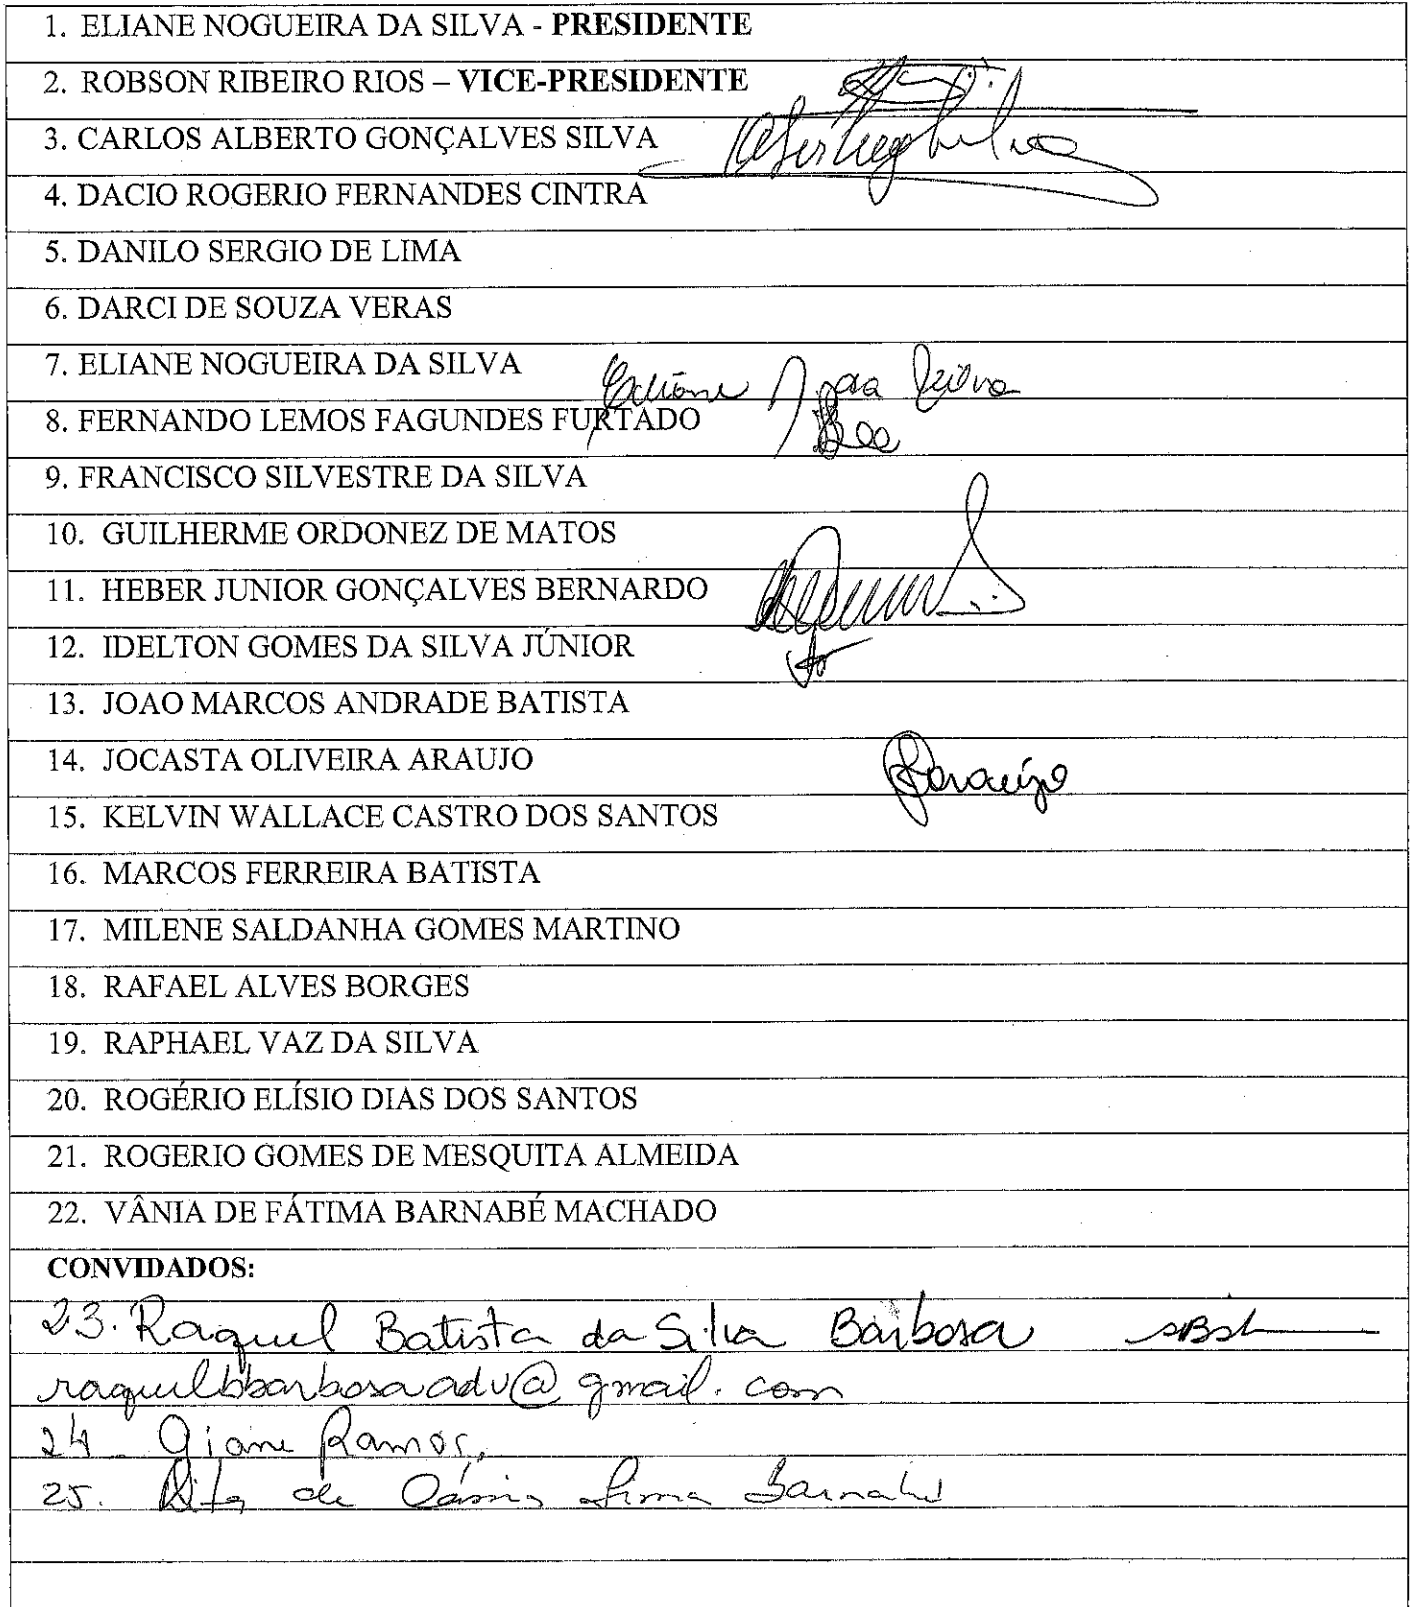 1. ELIANE NOGUEIRA DA SILVA - PRESIDENTE
2. ROBSON RIBEIRO RIOS – VICE-PRESIDENTE
3. CARLOS ALBERTO GONÇALVES SILVA
4. DACIO ROGERIO FERNANDES CINTRA
5. DANILO SERGIO DE LIMA
6. DARCI DE SOUZA VERAS
7. ELIANE NOGUEIRA DA SILVA
8. FERNANDO LEMOS FAGUNDES FURTADO
9. FRANCISCO SILVESTRE DA SILVA
10. GUILHERME ORDONEZ DE MATOS
11. HEBER JUNIOR GONÇALVES BERNARDO
12. IDELTON GOMES DA SILVA JÚNIOR
13. JOAO MARCOS ANDRADE BATISTA
14. JOCASTA OLIVEIRA ARAUJO
15. KELVIN WALLACE CASTRO DOS SANTOS
16. MARCOS FERREIRA BATISTA
17. MILENE SALDANHA GOMES MARTINO
18. RAFAEL ALVES BORGES
19. RAPHAEL VAZ DA SILVA
20. ROGÉRIO ELÍSIO DIAS DOS SANTOS
21. ROGERIO GOMES DE MESQUITA ALMEIDA
22. VÂNIA DE FÁTIMA BARNABÉ MACHADO
CONVIDADOS:
23. Raquel Batista da Silva Barbosa
raquelbbarbosaadv@gmail.com
24 - Giane Ramos,
25. Rita de Cássia Lima Barnabé